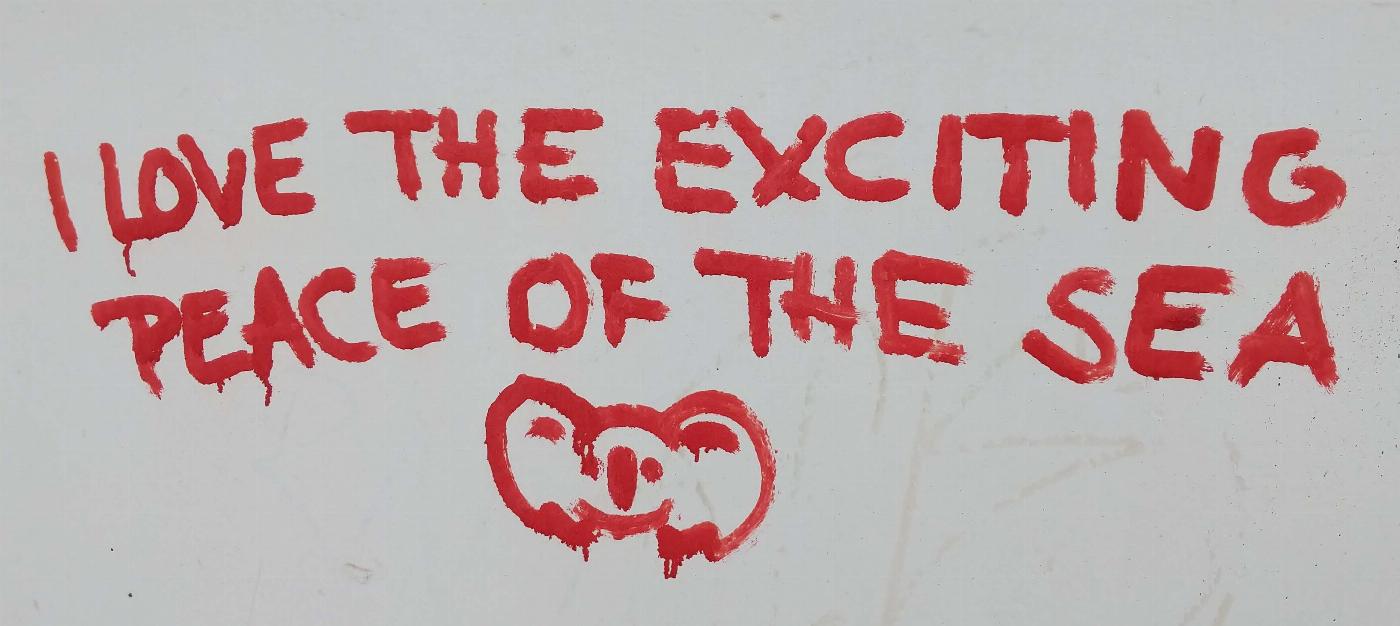 I LOVE THE EXCITING
PEACE OF THE SEA